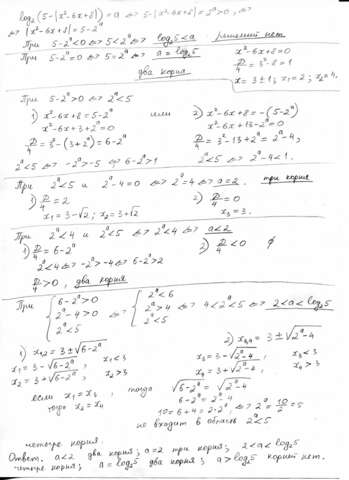 log₂(5-|x²-6x+8|)=a ⇔ 5-|x²-6x+8|=2ᵃ>0, ⇔
⇔ |x²-6x+8|=5-2ᵃ
При 5-2ᵃ<0 ⇔ 5<2ᵃ ⇔ log₂5<a решений нет.
При 5-2ᵃ=0 ⇔ 5=2ᵃ ⇔ a=log₂5
два корня
x²-6x+8=0
D/4=3²-8=1
x=3±1; x₁=2; x₂=4.
При 5-2ᵃ>0 ⇔ 2ᵃ<5
1) x²-6x+8=5-2ᵃ или 2) x²-6x+8=-(5-2ᵃ)
x²-6x+3+2ᵃ=0 x²-6x+13-2ᵃ=0
D/4=3²-(3+2ᵃ)=6-2ᵃ D/4=3²-13+2ᵃ=2ᵃ-4,
2ᵃ<5 ⇔ -2ᵃ>-5 ⇔ 6-2ᵃ>1 2ᵃ<5 ⇔ 2ᵃ-4<1.
При 2ᵃ<5 и 2ᵃ-4=0 ⇔ 2ᵃ=4 ⇔ a=2. три корня
1) D/4=2 2) D/4=0
x₁=3-√2; x₂=3+√2 x₃=3.
При 2ᵃ<4 и 2ᵃ<5 ⇔ 2ᵃ<4 ⇔ a<2
1) D/4=6-2ᵃ 2) D/4<0 ∅
2ᵃ<4 ⇔ -2ᵃ>-4 ⇔ 6-2ᵃ>2
D/4>0, два корня
При { 6-2ᵃ>0 ⇔ { 2ᵃ<6
2ᵃ-4>0 2ᵃ>4 ⇔ 4<2ᵃ<5 ⇔ 2<a<log₂5
2ᵃ<5 2ᵃ<5
1) x₁,₂=3±√6-2ᵃ 2) x₃,₄=3±√2ᵃ-4
x₁=3-√6-2ᵃ, x₁<3 x₃=3-√2ᵃ-4, x₃<3
x₂=3+√6-2ᵃ, x₂>3 x₄=3+√2ᵃ-4, x₄>3
если x₁=x₃, тогда √6-2ᵃ=√2ᵃ-4
тогда x₂=x₄ 6-2ᵃ=2ᵃ-4
10=6+4=2·2ᵃ, ⇔ 2ᵃ=10/2=5
не входит в область 2ᵃ<5
четыре корня.
Ответ. a<2 два корня; a=2 три корня; 2<a<log₂5
четыре корня; a=log₂5 два корня; a>log₂5 корней нет.